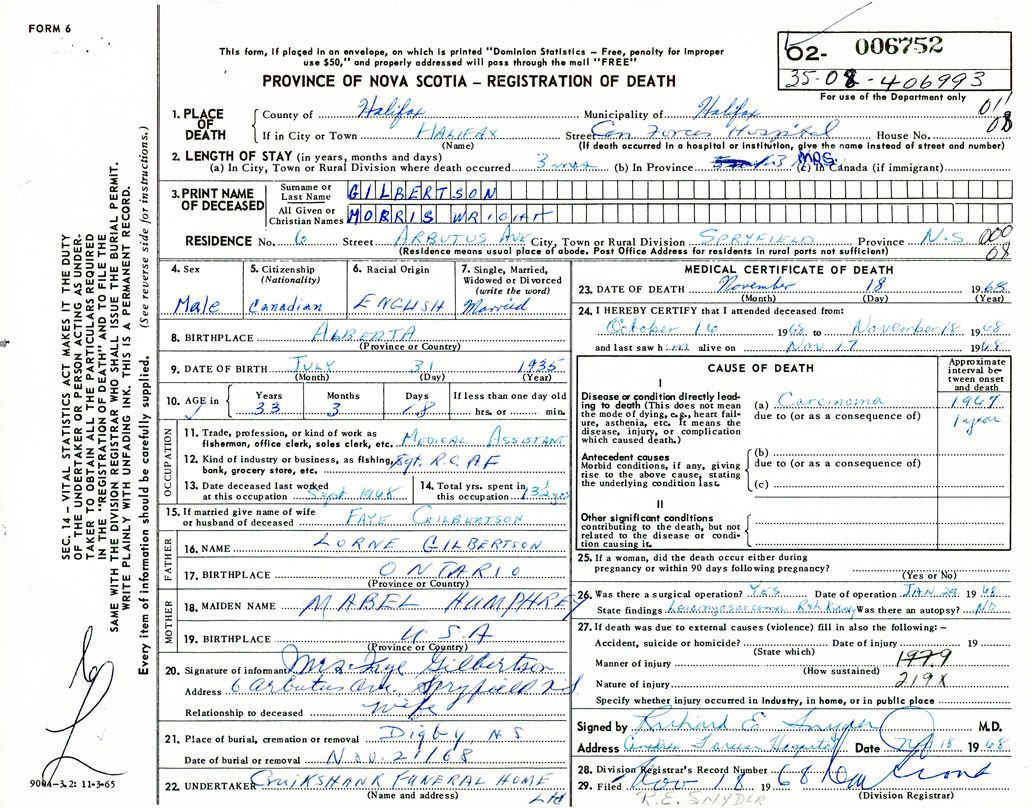 FORM 6
This form, if placed in an envelope, on which is printed "Dominion Statistics – Free, penalty for improper
use $50," and properly addressed will pass through the mail "FREE"
PROVINCE OF NOVA SCOTIA – REGISTRATION OF DEATH
02- 006752
35-08-406993
For use of the Department only
SEC. 14 – VITAL STATISTICS ACT MAKES IT THE DUTY
OF THE UNDERTAKER OR PERSON ACTING AS UNDER-
TAKER TO OBTAIN ALL THE PARTICULARS REQUIRED
IN THE "REGISTRATION OF DEATH" AND TO FILE THE
SAME WITH THE DIVISION REGISTRAR WHO SHALL ISSUE THE BURIAL PERMIT.
WRITE PLAINLY WITH UNFADING INK. THIS IS A PERMANENT RECORD.
Every item of information should be carefully supplied. (See reverse side for instructions.)
900A-3.2: 11-3-65
1. PLACE OF DEATH
County of Halifax Municipality of Halifax 011
If in City or Town HALIFAX Street Can Forces Hospital House No. 08
(Name) (If death occurred in a hospital or institution, give the name instead of street and number)
2. LENGTH OF STAY (in years, months and days)
(a) In City, Town or Rural Division where death occurred 3 mos (b) In Province 3 MOS. (c) In Canada (if immigrant)
3. PRINT NAME OF DECEASED
Surname or Last Name GILBERTSON
All Given or Christian Names MORRIS WRIGHT
RESIDENCE No. 6 Street ARBUTUS AVE City, Town or Rural Division SPRYFIELD Province N.S 000
08
(Residence means usual place of abode. Post Office Address for residents in rural parts not sufficient)
4. Sex
Male
5. Citizenship
(Nationality)
Canadian
6. Racial Origin
ENGLISH
7. Single, Married,
Widowed or Divorced
(write the word)
Married
8. BIRTHPLACE ALBERTA
(Province or Country)
9. DATE OF BIRTH JULY 31 1935
(Month) (Day) (Year)
10. AGE in Years Months Days If less than one day old
33 3 18 hrs. or min.
OCCUPATION
11. Trade, profession, or kind of work as
fisherman, office clerk, sales clerk, etc. MEDICAL ASSISTANT
12. Kind of industry or business, as fishing,
bank, grocery store, etc. Sgt. R.C.A.F
13. Date deceased last worked
at this occupation Sept 1968
14. Total yrs. spent in
this occupation 13½ yrs
15. If married give name of wife
or husband of deceased FAYE GILBERTSON
FATHER
16. NAME LORNE GILBERTSON
17. BIRTHPLACE ONTARIO
(Province or Country)
MOTHER
18. MAIDEN NAME MABEL HUMPHREY
19. BIRTHPLACE U.S.A
(Province or Country)
20. Signature of informant Mrs Faye Gilbertson
Address 6 Arbutus Ave. Spryfield N S
Relationship to deceased Wife
21. Place of burial, cremation or removal Digby N.S
Date of burial or removal Nov. 21/68
22. UNDERTAKER CRUIKSHANK FUNERAL HOME
(Name and address) Ltd
MEDICAL CERTIFICATE OF DEATH
23. DATE OF DEATH November 18 1968
(Month) (Day) (Year)
24. I HEREBY CERTIFY that I attended deceased from:
October 16 1968 to November 18 1968
and last saw him alive on Nov 17 1968
CAUSE OF DEATH
Approximate
interval be-
tween onset
and death
I
Disease or condition directly lead-
ing to death (This does not mean
the mode of dying, e.g., heart fail-
ure, asthenia, etc. It means the
disease, injury, or complication
which caused death.)
(a) Carcinoma 1967
due to (or as a consequence of) 1 year
Antecedent causes
Morbid conditions, if any, giving
rise to the above cause, stating
the underlying condition last.
(b)
due to (or as a consequence of)
(c)
II
Other significant conditions
contributing to the death, but not
related to the disease or condi-
tion causing it.
25. If a woman, did the death occur either during
pregnancy or within 90 days following pregnancy?
(Yes or No)
26. Was there a surgical operation? YES Date of operation JAN 29 1968
State findings Leiomyosarcoma Rt Was there an autopsy? NO
27. If death was due to external causes (violence) fill in also the following: –
Accident, suicide or homicide? Date of injury 19
(State which)
Manner of injury 1979
(How sustained)
Nature of injury 219X
Specify whether injury occurred in Industry, in home, or in public place
Signed by Richard E. Snyder M.D.
Address Canadian Forces Hospital Date Nov 18 1968
28. Division Registrar's Record Number
29. Filed Nov 18 1968
(Division Registrar)
R.E. SNYDER